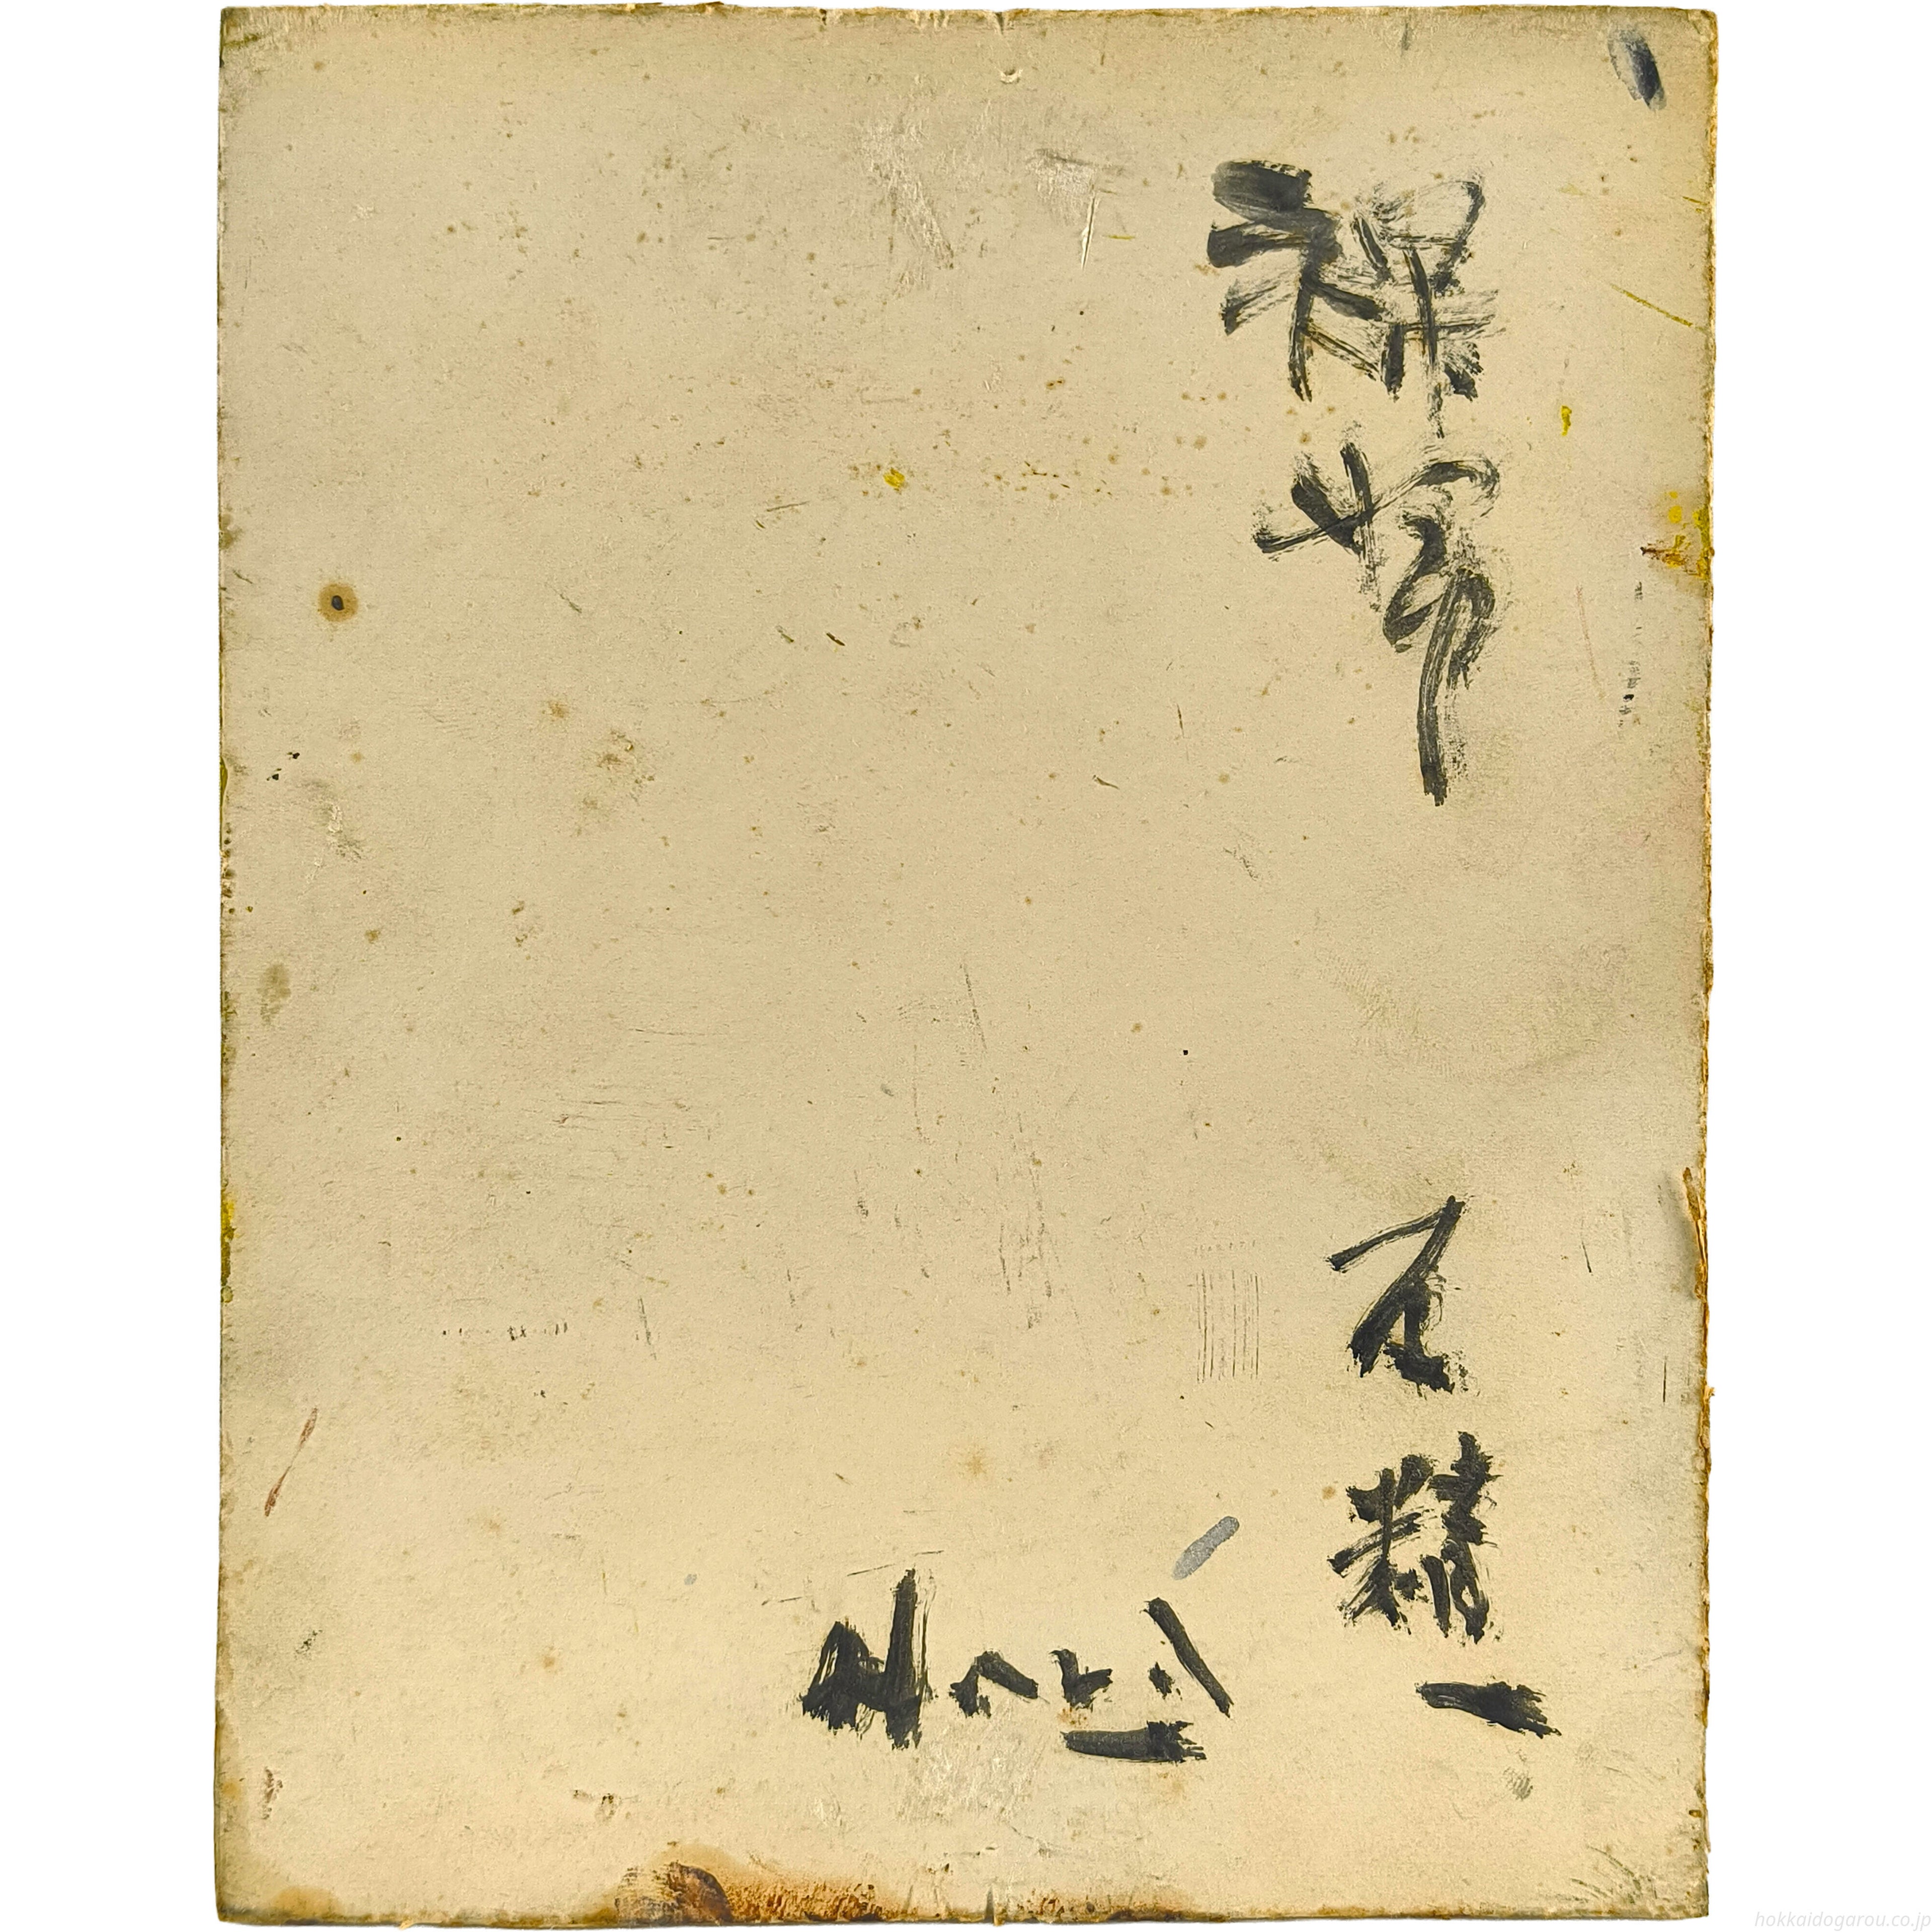 裸婦
石精一
hokkaidogarou.co.jp